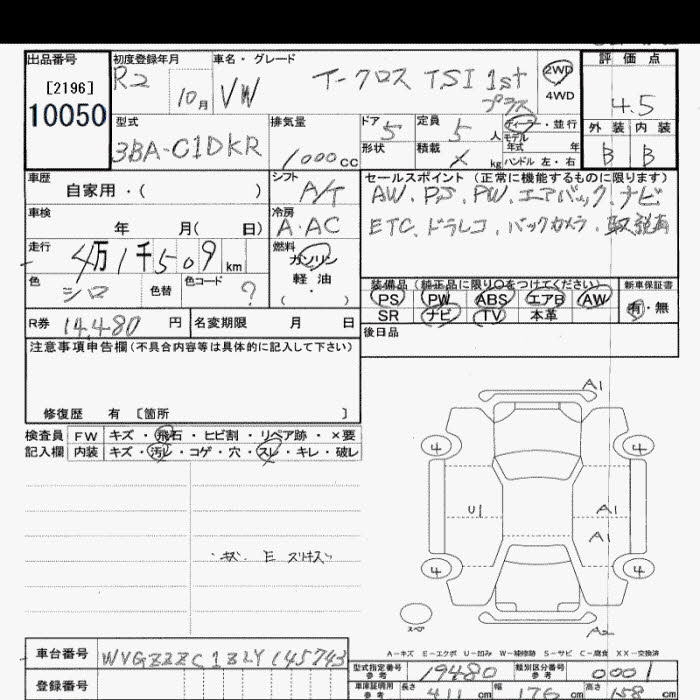 出品番号 初度登録年月 車名・グレード 評価点
[2196] R2 10月 VW T-クロス TSI 1st プラス 2WD 4WD 4.5
10050
型式 排気量 ドア 5 定員 5人 ディーラー・並行 外装 内装
3BA-C1DKR 1000cc 形状 積載 X kg モデル年式 年 ハンドル 左・右 B B
車歴 シフト セールスポイント (正常に機能するものに限ります)
自家用・( ) A/T AW. PS. PW. エアバック. ナビ
車検 冷房 ETC. ドラレコ. バックカメラ. 取説有
年 月( 日) A・AC
走行 燃料
4万1千509km ガソリン
色 シロ 色替 色コード ? 軽油 ( ・ )
装備品 (純正品に限り○をつけてください) 新車保証書
PS PW ABS エアB AW 有・無
SR ナビ TV 本革
R券 14,480円 名変期限 月 日
後日品
注意事項申告欄(不具合内容等は具体的に記入して下さい)
修復歴 有 [箇所 ]
検査員 FW キズ・飛石・ヒビ割・リペア跡・×要
記入欄 内装 キズ・汚レ・コゲ・穴・スレ・キレ・破レ
A1
4 4
U1 A1
A1
・キズ. E スリキズ
4 4
スペア
A2
A-キズ E-エクボ U-凹み W-補修跡 S-サビ C-腐食 XX-交換済
車台番号 WVGZZZC1ZLY145743
型式指定番号 参考 19480 類別区分番号 参考 0001
登録番号
車庫証明用 参考 長さ 411cm 幅 176cm 高さ 158cm